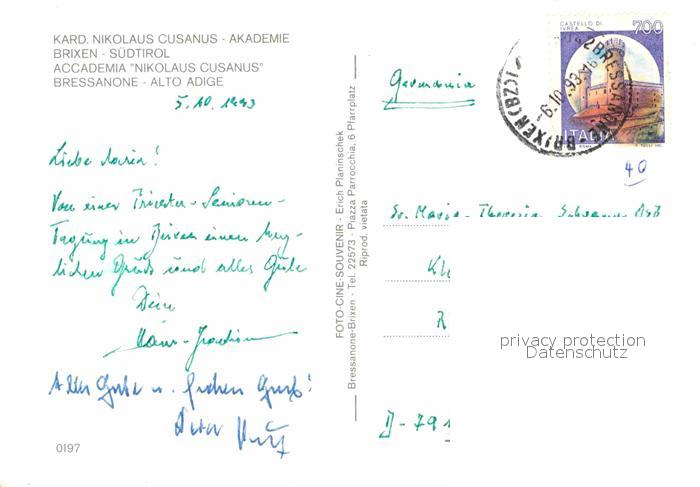 KARD. NIKOLAUS CUSANUS - AKADEMIE
BRIXEN - SÜDTIROL
ACCADEMIA "NIKOLAUS CUSANUS"
BRESSANONE - ALTO ADIGE
5.10.1993
Liebe Maria!
Von einer Priester-Senioren-
Tagung in Brixen einen herz-
lichen Gruß und alles Gute
Dein
Hans-Joachim
Alles Gute u. frohen Gruß!
0197
FOTO-CINE-SOUVENIR - Erich Planinschek
Bressanone-Brixen - Tel. 22573 - Piazza Parrocchia, 6 Pfarrplatz
Riprod. vietata
Germania
CASTELLO DI
IVREA
700
ITALIA
ROMA
BRESSANONE-BRIXEN (BZ)
-6.10.93-16
40
Sr. Maria-Theresia
Kl
R
D-791
privacy protection
Datenschutz